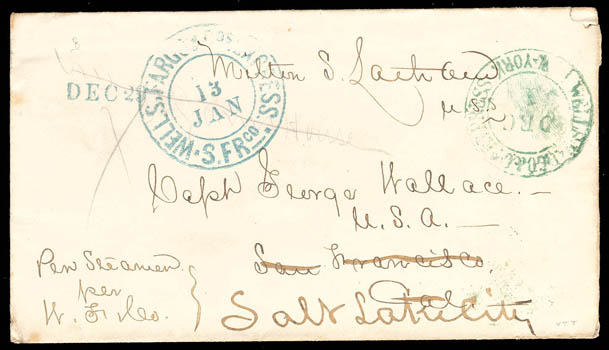 DEC 2
WELLS, FARGO & CO'S EXPRESS.
13
JAN
S. FR CO
Milton S. Latham
U.S.S
DEC
Capt George Wallace.
U.S.A.
San Francisco,
Cal
Salt Lake City
Per Steamer
per
W. F. & Co.